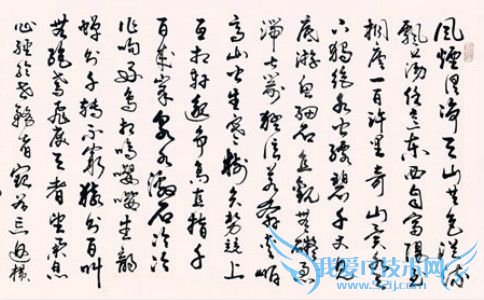 風煙俱淨天山共色從流
飄蕩任意東西自富陽至
桐廬一百許里奇山異水天
下獨絕水皆縹碧千丈見
底游魚細石直視無礙急
湍甚箭猛浪若奔夾岸
高山皆生寒樹負勢競上
互相軒邈爭高直指千
百成峯泉水激石泠泠
作响好鳥相鳴嚶嚶生韻
蟬則千轉不窮猿則百叫
無絕鳶飛戾天者望峯息
心經綸世務者窺谷忘返橫
我爱IT技术网